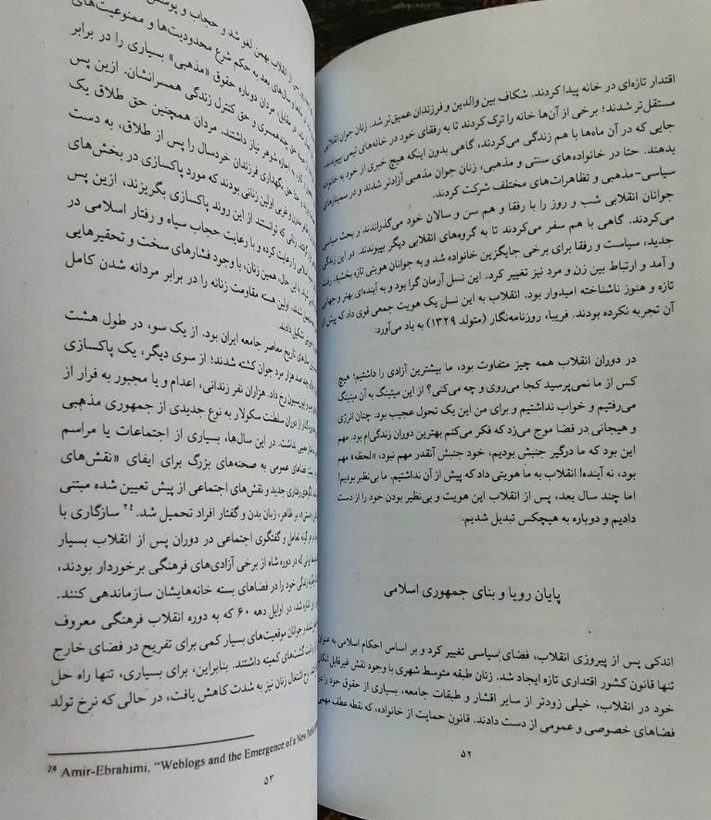 اقتدار تازه‌ای در خانه پیدا کردند. شکاف بین والدین و فرزندان عمیق‌تر شد. زنان جوان انقلابی
مستقل‌تر شدند؛ برخی از آن‌ها خانه را ترک کردند تا به رفقای خود در خانه‌های تیمی بپیوندند.
جایی که در آن ماه‌ها با هم زندگی می‌کردند، گاهی بدون اینکه هیچ خبری از خود به خانواده
بدهند. حتا در خانواده‌های سنتی و مذهبی، زنان جوان مذهبی آزادتر شدند و در سمینارهای
سیاسی-مذهبی و تظاهرات‌های مختلف شرکت کردند.
جوانان انقلابی شب و روز را با رفقا و هم سن و سالان خود می‌گذراندند و بحث سیاسی
می‌کردند. گاهی با هم سفر می‌کردند تا به گروه‌های انقلابی دیگر بپیوندند. در این زندگی
جدید، سیاست و رفقا برای برخی جایگزین خانواده شد و به جوانان هویتی تازه بخشید. رفت
و آمد و ارتباط بین زن و مرد نیز تغییر کرد. این نسل آرمان گرا بود و به آینده‌ای بهتر و جهانی
تازه و هنوز ناشناخته امیدوار بود. انقلاب به این نسل یک هویت جمعی قوی داد که پیش از
آن تجربه نکرده بودند. فریبا، روزنامه‌نگار (متولد ۱۳۲۹) به یاد می‌آورد:
در دوران انقلاب همه چیز متفاوت بود، ما بیشترین آزادی را داشتیم؛ هیچ
کس از ما نمی‌پرسید کجا می‌روی و چه می‌کنی؟ از این میتینگ به آن میتینگ
می‌رفتیم و خواب نداشتیم و برای من این یک تحول عجیب بود. چنان انرژی
و هیجانی در فضا موج می‌زد که فکر می‌کنم بهترین دوران زندگی‌ام بود. مهم
این بود که ما درگیر جنبش بودیم، خود جنبش آنقدر مهم نبود، «لحظه» مهم
بود، نه آینده! انقلاب به ما هویتی داد که پیش از آن نداشتیم. ما بی‌نظیر بودیم!
اما چند سال بعد، پس از انقلاب این هویت و بی‌نظیر بودن خود را از دست
دادیم و دوباره به هیچکس تبدیل شدیم.
پایان رویا و بنای جمهوری اسلامی
اندکی پس از پیروزی انقلاب، فضای سیاسی تغییر کرد و بر اساس احکام اسلامی به عنوان
تنها قانون کشور اقتداری تازه ایجاد شد. زنان طبقه متوسط شهری با وجود نقش غیرقابل انکار
خود در انقلاب، خیلی زودتر از سایر اقشار و طبقات جامعه، بسیاری از حقوق خود را در
فضاهای خصوصی و عمومی از دست دادند. قانون حمایت از خانواده، که نقطه عطف مهمی
۵۲
انقلاب بهمن لغو شد و حجاب و
سال‌های بعد به حکم شرع محدودیت‌ها و ممنوعیت‌های
مقابل، مردان دوباره حقوق «مذهبی» بسیاری را در برابر
چندهمسری و حق کنترل زندگی همسرانشان. ازین پس
اجازه شوهر نیاز داشتند. مردان همچنین حق طلاق یک
حق نگهداری فرزندان خردسال را پس از طلاق، به دست
و غربی اولین زنانی بودند که مورد پاکسازی در بخش‌های
زنانی که توانستند از این روند پاکسازی بگریزند، ازین پس
رعایت کرده و با رعایت حجاب سیاه و رفتار اسلامی در
این حال، همین زنان، با وجود فشارهای سخت و تحقیرهایی
اولین هسته مقاومت زنانه را در برابر مردانه شدن کامل
تشکیل دادند.
تاریخ معاصر جامعه ایران بود. از یک سو، در طول هشت
صد هزار مرد جوان کشته شدند؛ از سوی دیگر، یک پاکسازی
رخ داد. هزاران نفر زندانی، اعدام و یا مجبور به فرار از
از دوران سلطنت سکولار به نوع جدیدی از جمهوری مذهبی
نداشت. در این سال‌ها، بسیاری از اجتماعات یا مراسم
فضاهای عمومی به صحنه‌های بزرگ برای ایفای «نقش‌های
رفتاری جدید و نقش‌های اجتماعی از پیش تعیین شده مبتنی
بر ظاهر، زبان بدن و گفتار افراد تحمیل شد.²⁴ سازگاری با
گونه تعامل و گفتگوی اجتماعی در دوران پس از انقلاب بسیار
که در دوره شاه از برخی آزادی‌های فرهنگی برخوردار بودند،
زندگی خود را در فضاهای بسته خانه‌هایشان سازماندهی کنند.
شد، در اوایل دهه ۶۰ که به دوره انقلاب فرهنگی معروف
و جوانان موقعیت‌های بسیار کمی برای تفریح در فضای خارج
گشت‌های کمیته داشتند. بنابراین، برای بسیاری، تنها راه حل
اشتغال زنان نیز به شدت کاهش یافت، در حالی که نرخ تولد
²⁴ Amir-Ebrahimi, "Weblogs and the Emergence of a New
۵۳